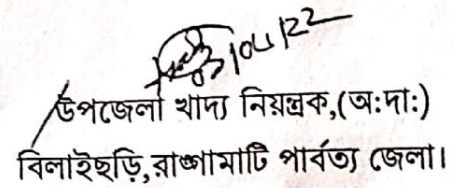 উপজেলা খাদ্য নিয়ন্ত্রক,(অ:দা:)
বিলাইছড়ি,রাঙ্গামাটি পার্বত্য জেলা।